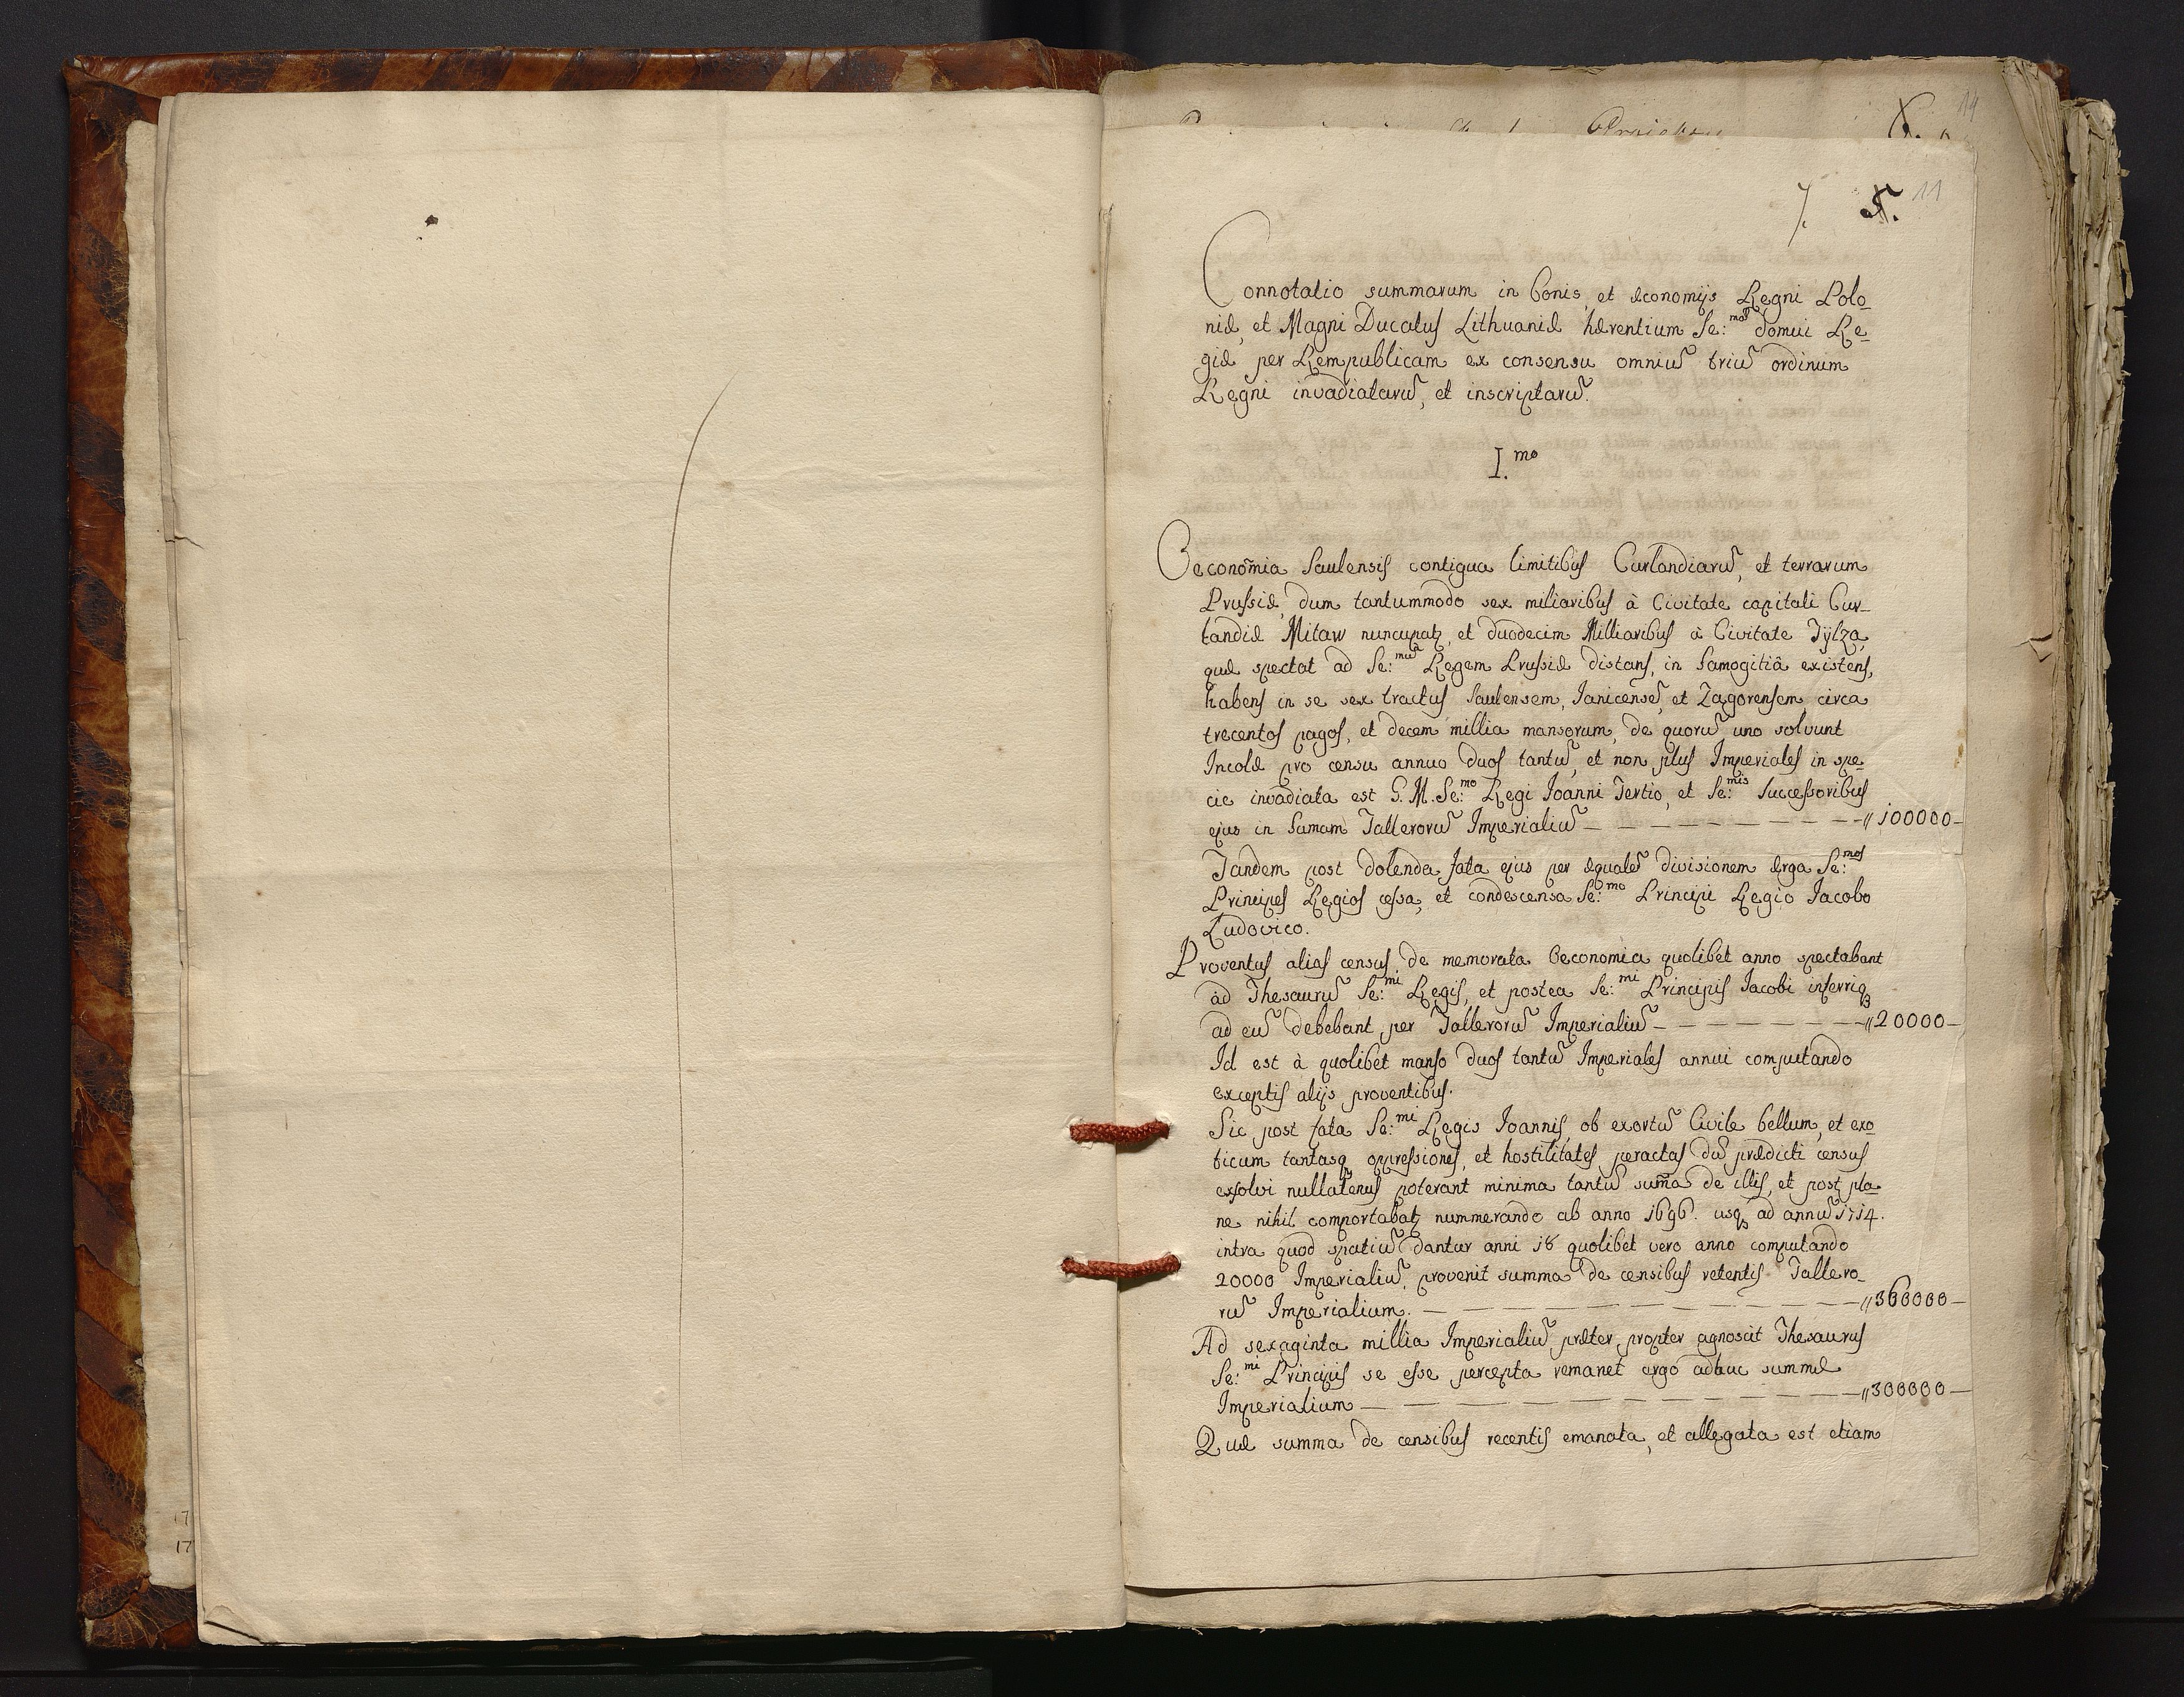 14
7. 11
Connotatio summarum in bonis, et œconomijs Regni Polo=
niæ, et Magni Ducatus Lithuaniæ hærentium Se:mæ domui Re=
giæ per Rempublicam ex consensu omniũ triũ ordinum
Regni invadiatarũ, et inscriptarũ.
I.mo
Oeconom̃ia Saulensis contigua limitibus Curlandiarũ, et terrarum
Prussiæ, dum tantummodo sex miliaribus à Civitate capitali Cur=
landiæ Mitaw nuncupatȝ, et duodecim Milliaribus à Civitate Tÿlza,
quæ spectat ad Se:mũ Regem Prussiæ distans, in Samogitiâ existens,
habens in se sex tractus Saulensem, Janicensẽ, et Zagorensem, circa
trecentos pagos, et decem millia mansorum, de quorũ uno solvunt
Incolæ pro censu annuo duos tantũ, et non plus Imperiales in spe=
cie invadiata est S. M. Se:mo Regi Joanni Tertio, et Se:mis Successoribus
ejus in Sumam Tallerorũ Imperialiũ — — — — — — — — — // 100000 —
Tandem post dolenda fata ejus per æqualẽ divisionem ærga Se:mos
Principes Regios cessa, et condescensa Se:mo Principi Regio Jacobo
Ludovico.
Proventus alias census de memorata Oeconomia quolibet anno spectabant
ad Thesaurũ Se:mi Regis, et postea Se:mi Principis Jacobi inferriqȝ
ad eũ debebant per Tallerorũ Imperialiũ — — — — — — — // 20000 —
Id est à quolibet manso duos tantũ Imperiales annui computando
exceptis alijs proventibus.
Sic post fata Se:mi Regis Joannis, ob exortũ Civile bellum, et exo=
ticum tantasqȝ oppressiones, et hostilitates peractas dũ prædicti census
exsolvi nullatenus poterant minima tantũ sum̃a de illis, et post pla=
ne nihil comportabatȝ nummerando ab anno 1696. usqȝ ad annũ 1714.
intra quod spatiũ dantur anni 18 quolibet vero anno computando
20000 Imperialiũ, provenit summa de censibus retentis Tallero=
rũ Imperialium. — — — — — — — — — — — — // 360000 —
Ad sexaginta millia Imperialiũ præter propter agnoscit Thesaurus
Se:mi Principis se esse percepta remanet ergo adhuc summæ
Imperialium — — — — — — — — — — — — — // 300000 —
Quæ summa de censibus recentis emanata, et allegata est etiam